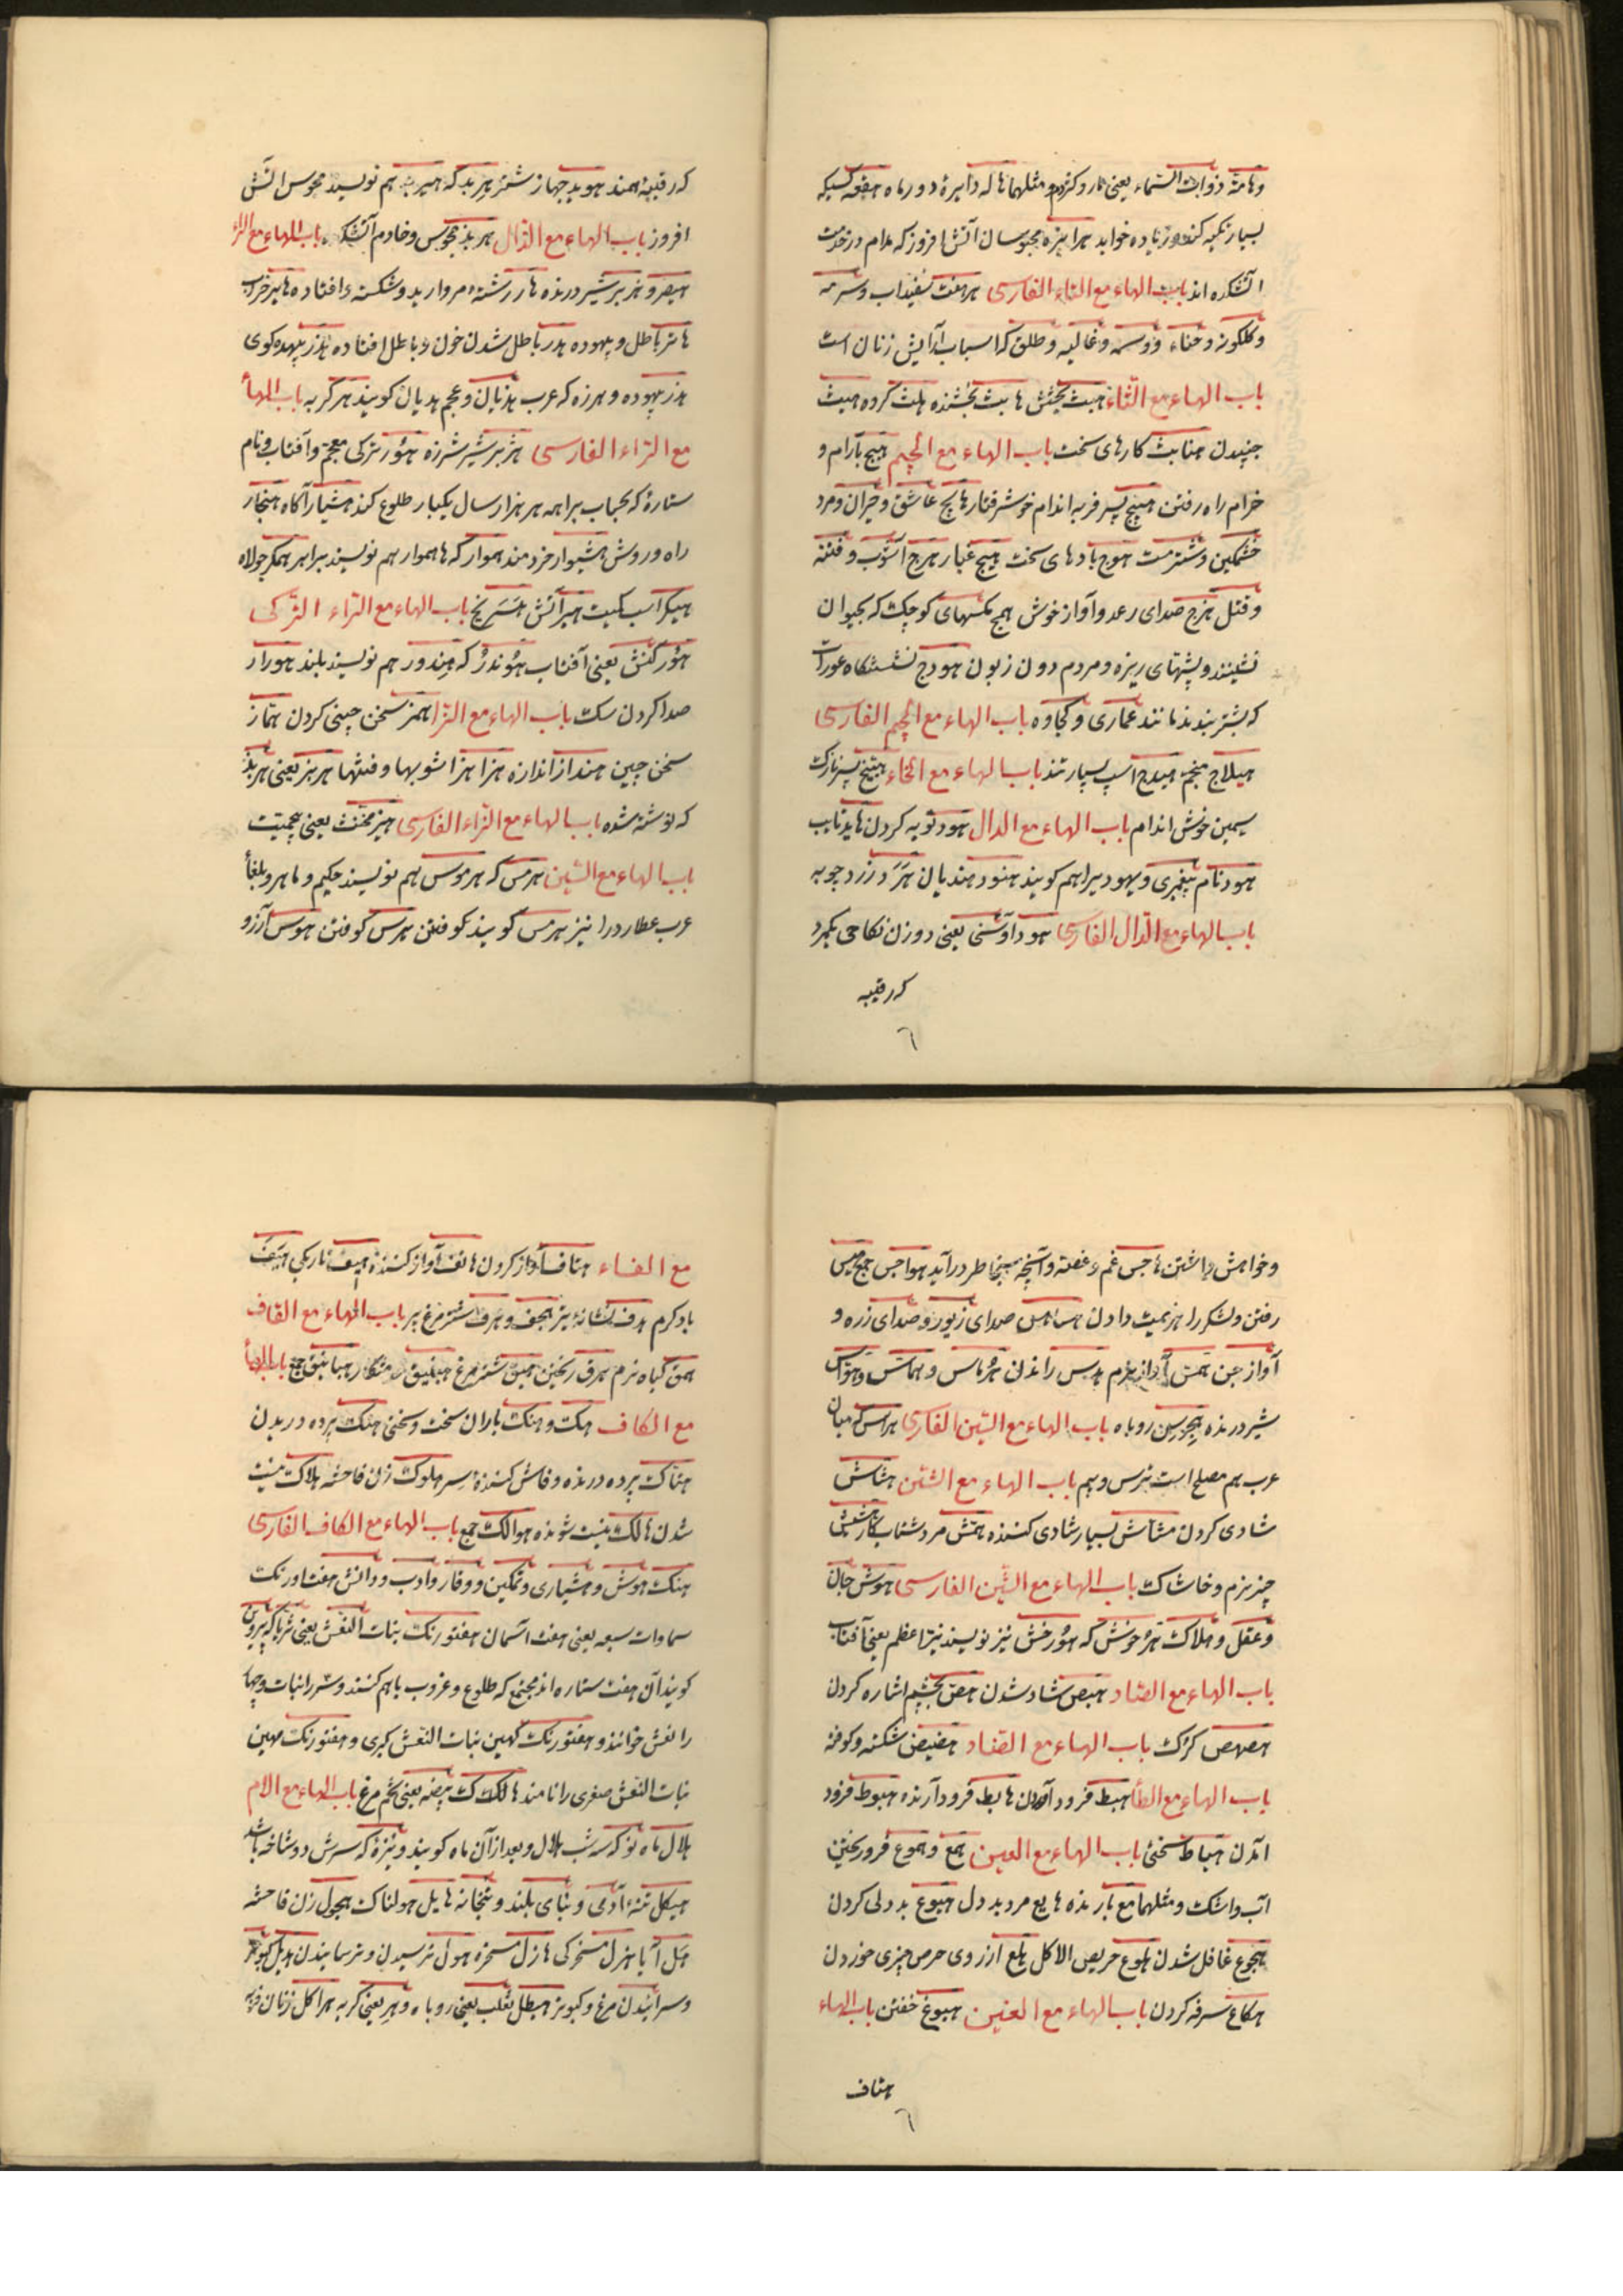 وهامّه ذوات السّماء یعنی مار وکژدم و مثلهما هاله دایرهٔ دور ماه هقعه کسیکه
بسیار تکیه کند و زیاده خوابد هرابزه مجوسان آتش افروز که مدام در خدمت
آتشکده اند باب الهاء مع التاء الفارسی هرهفت سفیداب وسرمه
وکلکونه وحناء ووسمه وغالیه وطلق که اسباب آرایش زنان است
باب الهاء مع الثاء هبث بخشش هابث بخشنده هلث کرده هیث
جنبیدن هنابث کارهای سخت باب الهاء مع الجیم هیج بآرام و
خرام راه رفتن هبیج پسر فربه اندام خوش رفتار هایج عاشق وحیران ومرد
خشمکین وشتر مست هوج بادهای سخت هیج غبار هرج آشوب وفتنه
وقتل هزج صدای رعد وآواز خوش همج مکسهای کوچک که بحیوان
نشینند وپشهای ریزه ومردم دون زبون هودج نشستکاه عورات
که بشتر بندند مانند عماری وکجاوه باب الهاء مع الجیم الفارسی
هیلاج منجم هیدج اسپ بسیار تند باب الهاء مع الخاء هبیخ پسر نازک
سیمین خوش اندام باب الهاء مع الدال هود توبه کردن هاید تایب
هود نام پیغمبری ویهود یرا هم کویند هنود هندیان هرد زرد چوبه
باب الهاء مع الذال الفارسی هود آوشنی یعنی دو زن نکاحی یکمرد
که رقیبه
که رقیبهٔ همند هوید جهاز شتر هربد که هیربد هم نویسند مجوس آتش
افروز باب الهاء مع الذال هربذ مجوس وخادم آتشکده باب الهاء مع الراء
هیصر وهزبر شیر درنده هار رشتهٔ مروارید وشکسته وافتاده هایر خراب
هاتر باطل وبیهوده هدر باطل شدن خون وباطل افتاده هذر بیهده کوی
هذر بیهوده وهرزه که عرب هذیان وعجم هدیان کویند هر کربه باب الهاء
مع الراء الفارسی هژبر شیر شرزه هور ترکی معجم وآفتاب ونام
ستارهٔ که بحساب براهمه هر هزار سال یکبار طلوع کند هشیار آکاه هنجار
راه وروش هشیوار خردمند هموار که هاهموار هم نویسند برابر همکر جولاه
هیکر اسب کمیت هیر آتش باب الهاء مع الراء الترکی
هور کنش یعنی آفتاب هوندر که هندور هم نویسند بلند هورار
صدا کردن سک باب الهاء مع الزا همز سخن چینی کردن همّاز
سخن چین هنداز اندازه هزاهز آشوبها وفتنها هربز یعنی هربذ
که نوشته شده باب الهاء مع الزاء الفارسی هیز مخنث یعنی بیحمیت
باب الهاء مع السین هرمس که هرموس هم نویسند حکیم وماهر وبلغاء
عرب عطارد را نیز هرمس کویند کوفتن هرس کوفتن هوس آرزو
وخواهش داشتن هاجس غم وغصه وآنچه بخاطر درآید هواجس جمع هیس
رفتن ولشکر را هزیمت دادن هساهس صدای زیور وصدای زره و
آواز جن همس آواز نرم هدس راندن هرماس وهماس وهوّاس
شیر درنده هجرس روباه باب الهاء مع السین الفارسی هراس که میان
عرب هم مصلح است ترس وبیم باب الهاء مع الشین هشاش
شادی کردن هشّاش بسیار شادی کننده همش مرد شتاب کار هشیش
چیز نرم وخاشاک باب الهاء مع الشین الفارسی هوش جان
وعقل وهلاک هرخوش که هورخش نیز نویسند نیّر اعظم یعنی آفتاب
باب الهاء مع الصاد هبص شاد شدن هصّ بچشم اشاره کردن
هصهص کرک باب الهاء مع الضاد هضیض شکسته وکوفته
باب الهاء مع الطا هبط فرود آمدن هابط فرود آرنده هبوط فرود
آمدن هیاط سختی باب الهاء مع العین همع وهموع فرو ریختن
آب واشک ومثلهما هامع بارنده هایع مرد بددل هیوع بددلی کردن
هجوع غافل شدن هلوع حریص الاکل هلع از روی حرص چیزی خوردن
هکاع سرفه کردن باب الهاء مع الغین هبوغ خفتن باب الهاء
هتاف
مع الفاء هتاف آواز کردن هاتف آواز کننده هیف باریکی هیف
باد کرم هدف نشانهٔ تیر هجف وهزف شتر مرغ پیر باب الهاء مع القاف
همق کیاه نرم هرق ریختن هیق شتر مرغ هبنیق خدمتکار هبانیق جمع باب الهاء
مع الکاف هکت وهنکت باران سخت وسختی هتک پرده دریدن
هتّاک پرده درنده وفاش کنندهٔ سرّ هلوک زن فاحشه هلاک نیست
شدن هالک نیست شونده هوالک جمع باب الهاء مع الکاف الفارسی
هنک هوش وهشیاری وتمکین ووقار وادب ودانش هفت اورنک
سماوات سبعه یعنی هفت آسمان هفتورنک بنات النعش یعنی ثریا که پروین
کویند آن هفت ستاره اند مجتمع که طلوع وغروب باهم کنند وسه را بنات وچهار
را نعش خوانند وهفتورنک کهین بنات النعش کبری وهفتورنک مهین
بنات النعش صغری را نامند هالک ک بیضه یعنی تخم مرغ باب الهاء مع الام
هلال ماه نو که سه شب هلال وبعد از آن ماه کویند ونیزهٔ که سرش دو شاخه باشد
هیکل تنهٔ آدمی وبنای بلند وبتخانه هایل هولناک هجول زن فاحشه
هل آیا هزل مسخرکی هازل مسخره هول ترسیدن وترسانیدن هدیل کبوتر
وسرائیدن مرغ وکبوتر هیطل ثعلب یعنی روباه وهر یعنی کربه هراکل زنان فربه